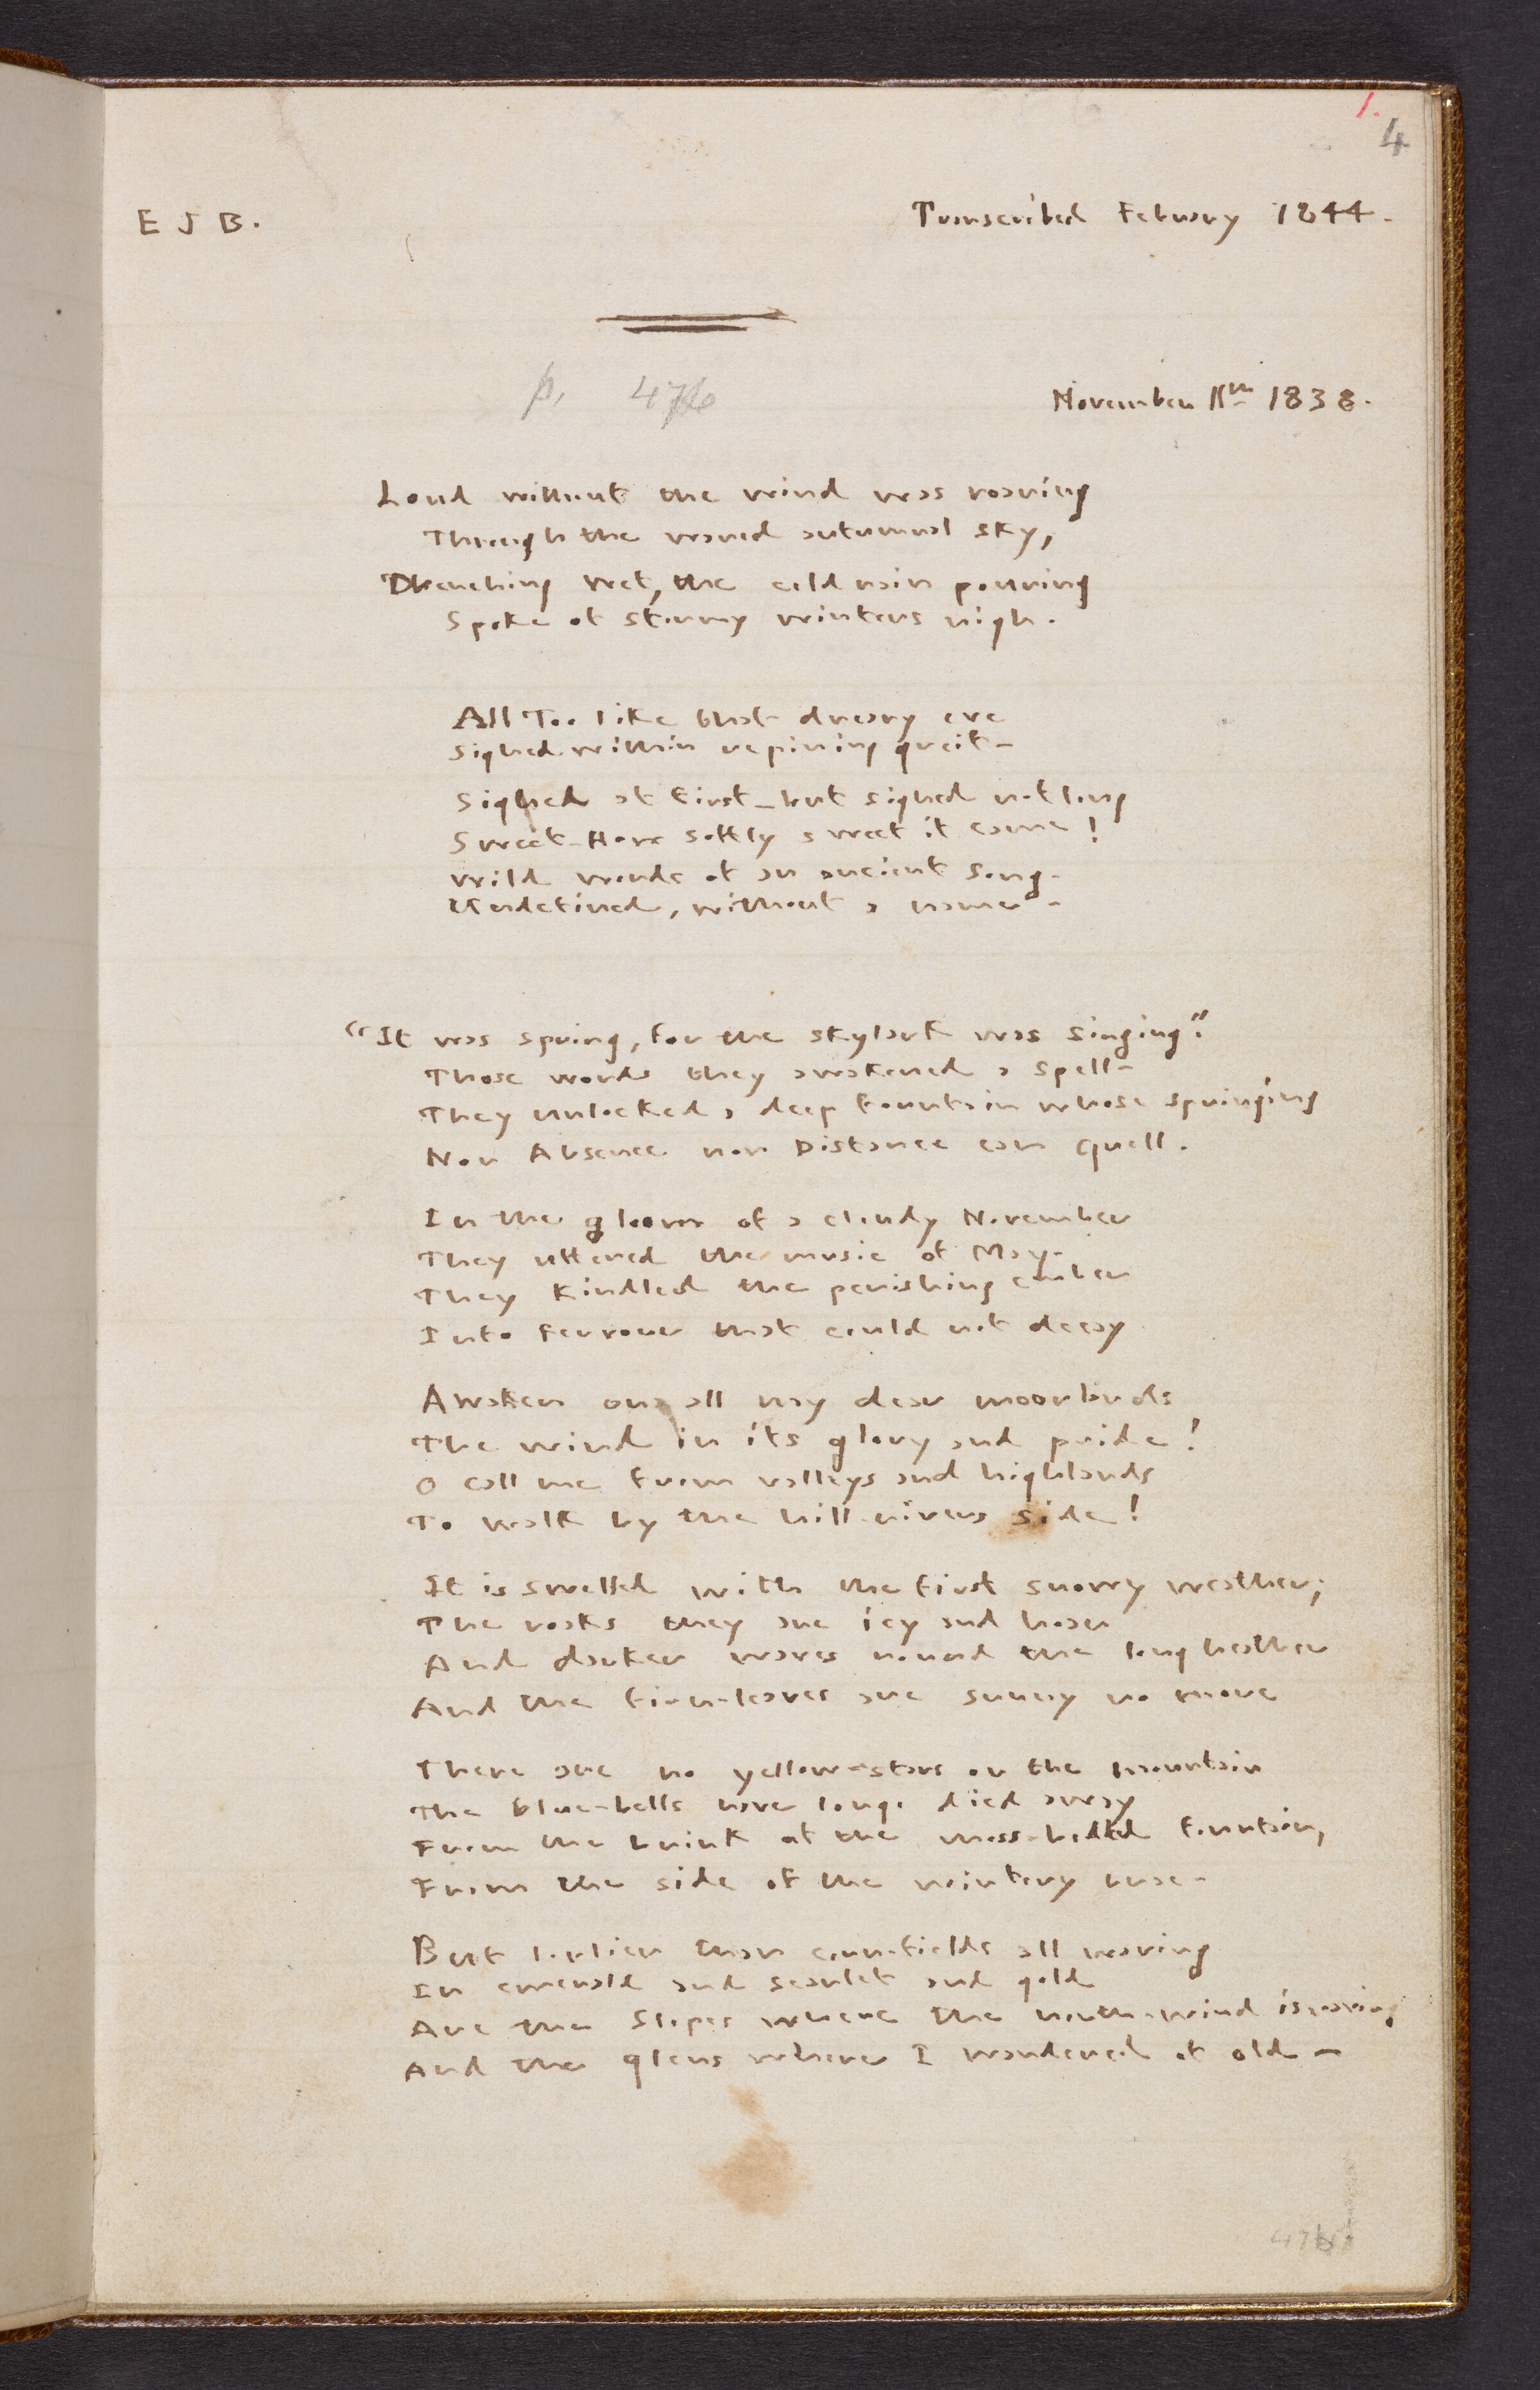 1.
4
E J B.
Transcribed Febuary 1844.
p. 476
November 11th 1838.
Loud without the wind was roaring
Through the waned autumnal sky,
Drenching wet, the cold rain pouring
Spoke of stormy winters nigh.
All Too like that dreary eve
Sighed within repining greif-
Sighed at first-but sighed not long
Sweet-How softly sweet it came!
Wild words of an ancient song-
Undefined, without a name-
"It was spring, for the skylark was singing."
Those words they awakened a spell-
They unlocked a deep fountain whose springing
Nor Absence nor Distance can quell.
In the gloom of a cloudy November
They uttered the music of May-
They Kindled the perishing ember
Into fervour that could not decay
Awaken on all my dear moorlands
The wind in its glory and pride!
O call me from valleys and highlands
To walk by the hill-rivers side!
It is swelled with the first snowy weather;
The rocks they are icy and hoar
And darker waves round the long heather
And the fern-leaves are sunny no more
There are no yellow-stars on the mountain
The blue-bells have long died away
From the brink of the moss-bedded fountain,
From the side of the wintery brae-
But lovlier than corn-fields all waving
In emerald and scarlet and gold
Are the Slopes where the north-wind is raving
And the glens where I wandered of old-